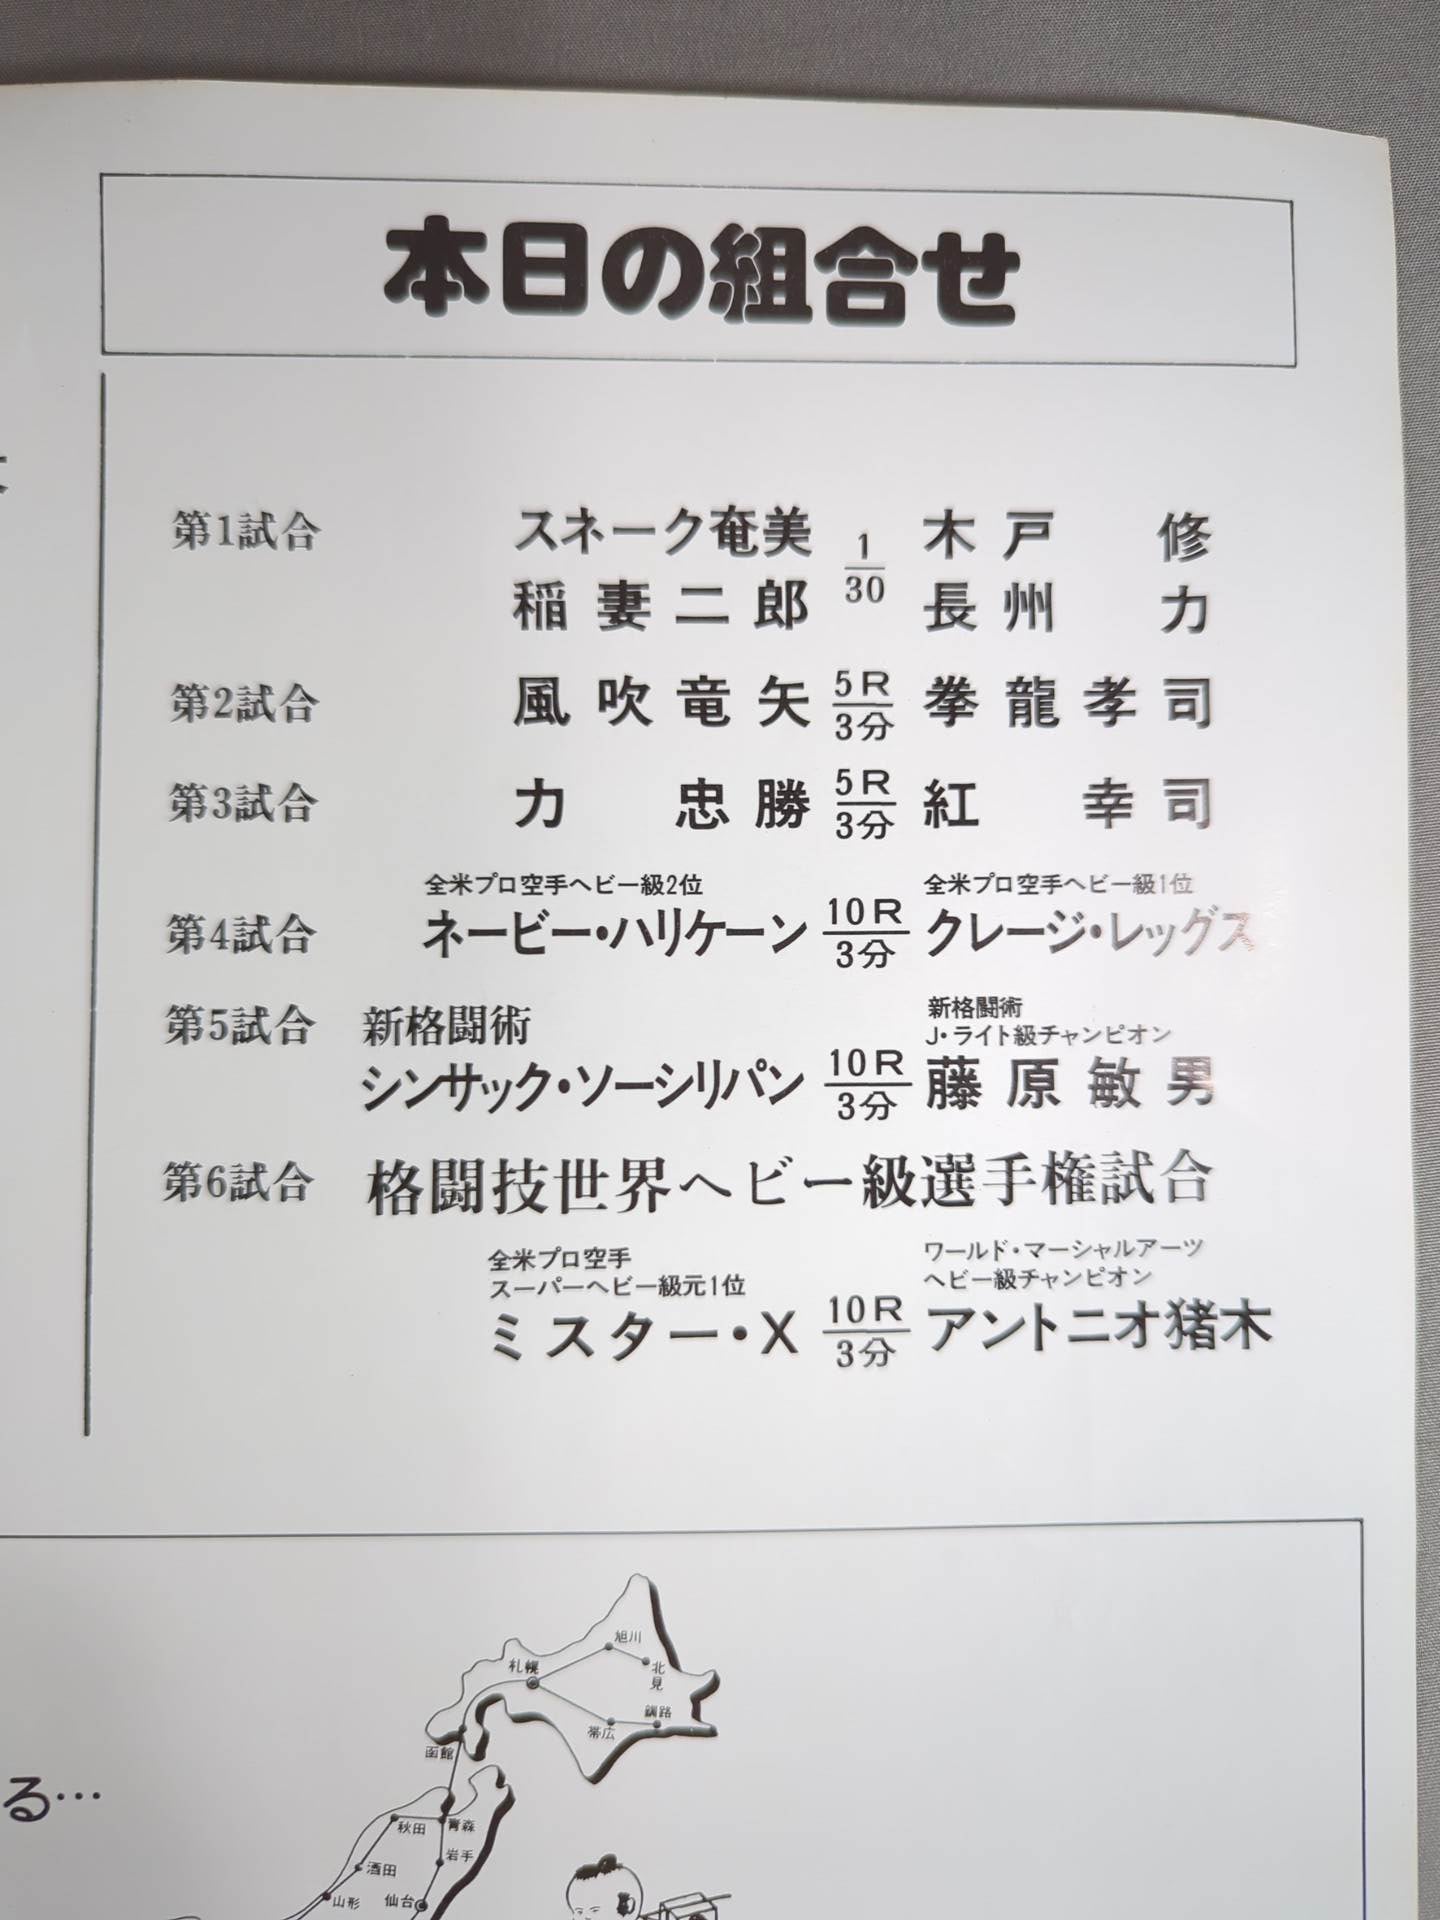 本日の組合せ
第1試合 スネーク奄美 1/30 木戸 修
稲妻二郎 長州 力
第2試合 風吹竜矢 5R/3分 拳龍孝司
第3試合 力 忠勝 5R/3分 紅 幸司
全米プロ空手ヘビー級2位 全米プロ空手ヘビー級1位
第4試合 ネービー・ハリケーン 10R/3分 クレージ・レッグス
第5試合 新格闘術 新格闘術
J・ライト級チャンピオン
シンサック・ソーシリパン 10R/3分 藤原敏男
第6試合 格闘技世界ヘビー級選手権試合
全米プロ空手 ワールド・マーシャルアーツ
スーパーヘビー級元1位 ヘビー級チャンピオン
ミスター・X 10R/3分 アントニオ猪木
旭川
札幌
北見
釧路
帯広
函館
る…
秋田
青森
岩手
酒田
山形
仙台